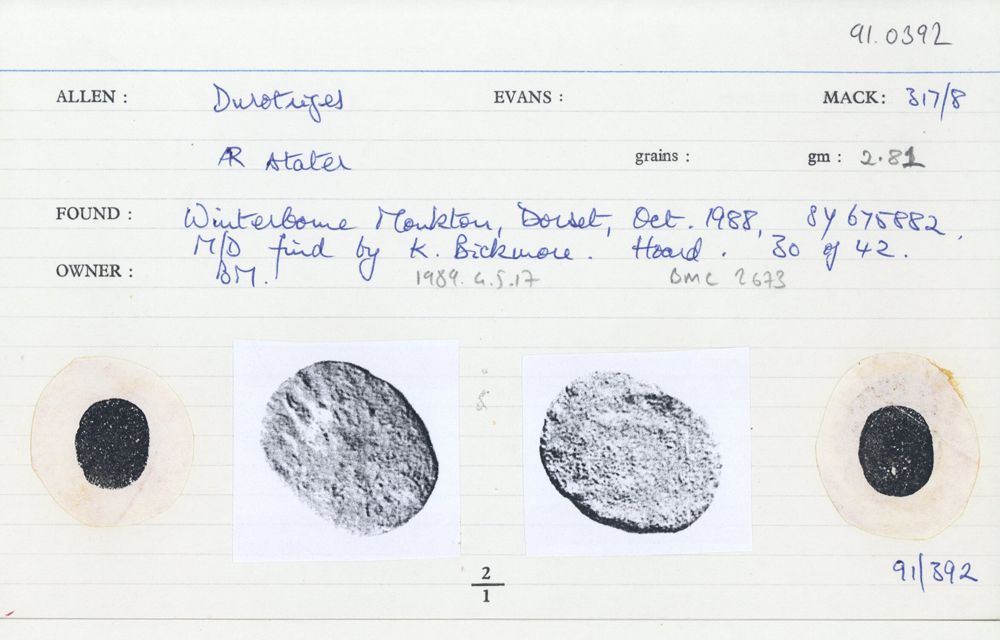 91.0392
ALLEN : Durotriges EVANS : MACK: 317/8
AR stater grains : gm : 2.81
FOUND : Winterborne Monkton, Dorset, Oct. 1988, SY 675882.
M/D find by K. Bickmore. Hoard. 30 of 42.
OWNER : BM. 1989.4.5.17 BMC 2673
2
1
91/392